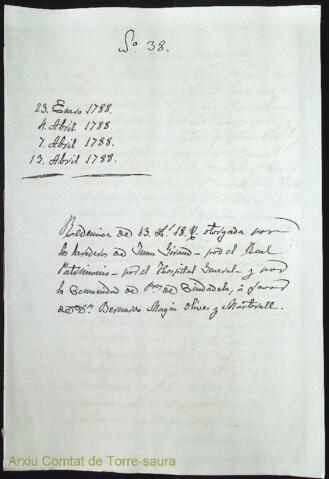 Nº 38.
23. Enero 1788.
4. Abril 1788
7. Abril 1788.
13. Abril 1788.
Redencion de 13 Lˢ 18. otorgada por
los herederos de Juan - por el Real
Patrimonio - por el Hospital General - y por
la Comunidad de Pbros de Ciudadela, à favor
de Dⁿ Bernardo Magin Olives y Martorell.
Arxiu Comtat de Torre-saura